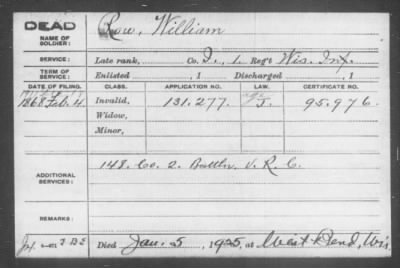 DEAD
NAME OF SOLDIER: Row, William
SERVICE: Late rank, Co. I., 1. Reg't Wis. Inf.
TERM OF SERVICE: Enlisted , 1 Discharged , 1
DATE OF FILING. CLASS. APPLICATION NO. LAW. CERTIFICATE NO.
1868 Feb. 4. Invalid, 131.277. J. 95.976.
Widow,
Minor,
ADDITIONAL SERVICES: 148. Co. 2. Battln. V. R. C.
REMARKS:
Died Jan. 5, 1925, at West Bend, Wis